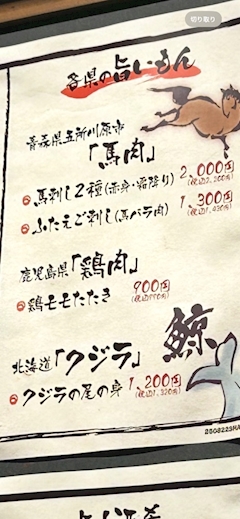 切り取り
各県の旨いもん
青森県五所川原市
「馬肉」
馬刺し2種(赤身・霜降り) 2,000円
(税込2,200円)
ふたえご刺し(馬バラ肉) 1,300円
(税込1,430円)
鹿児島県「鶏肉」
鶏モモたたき 900円
(税込990円)
鯨
北海道「クジラ」
クジラの尾の身 1,200円
(税込1,320円)